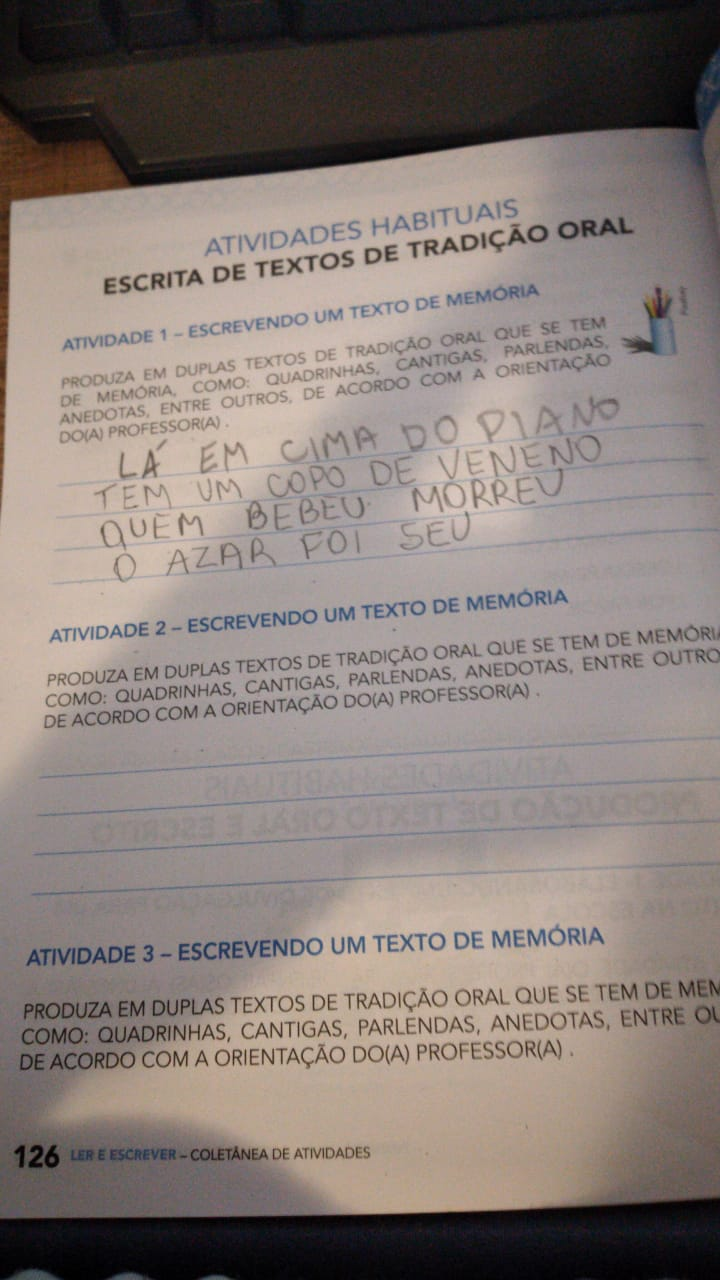 ATIVIDADES HABITUAIS
ESCRITA DE TEXTOS DE TRADIÇÃO ORAL
ATIVIDADE 1 – ESCREVENDO UM TEXTO DE MEMÓRIA
PRODUZA EM DUPLAS TEXTOS DE TRADIÇÃO ORAL QUE SE TEM
DE MEMÓRIA, COMO: QUADRINHAS, CANTIGAS, PARLENDAS,
ANEDOTAS, ENTRE OUTROS, DE ACORDO COM A ORIENTAÇÃO
DO(A) PROFESSOR(A) .
LÁ EM CIMA DO PIANO
TEM UM COPO DE VENENO
QUEM BEBEU MORREU
O AZAR FOI SEU
ATIVIDADE 2 – ESCREVENDO UM TEXTO DE MEMÓRIA
PRODUZA EM DUPLAS TEXTOS DE TRADIÇÃO ORAL QUE SE TEM DE MEMÓRIA
COMO: QUADRINHAS, CANTIGAS, PARLENDAS, ANEDOTAS, ENTRE OUTRO
DE ACORDO COM A ORIENTAÇÃO DO(A) PROFESSOR(A) .
ATIVIDADE 3 – ESCREVENDO UM TEXTO DE MEMÓRIA
PRODUZA EM DUPLAS TEXTOS DE TRADIÇÃO ORAL QUE SE TEM DE MEM
COMO: QUADRINHAS, CANTIGAS, PARLENDAS, ANEDOTAS, ENTRE OU
DE ACORDO COM A ORIENTAÇÃO DO(A) PROFESSOR(A) .
126 LER E ESCREVER – COLETÂNEA DE ATIVIDADES